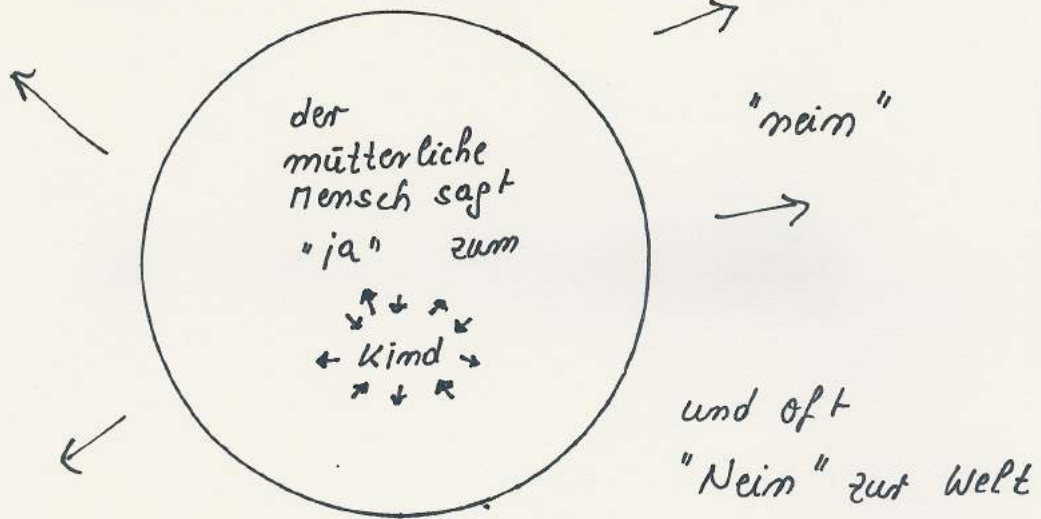 der
mütterliche
Mensch sagt
"ja" zum
Kind
"nein"
und oft
"Nein" zur Welt